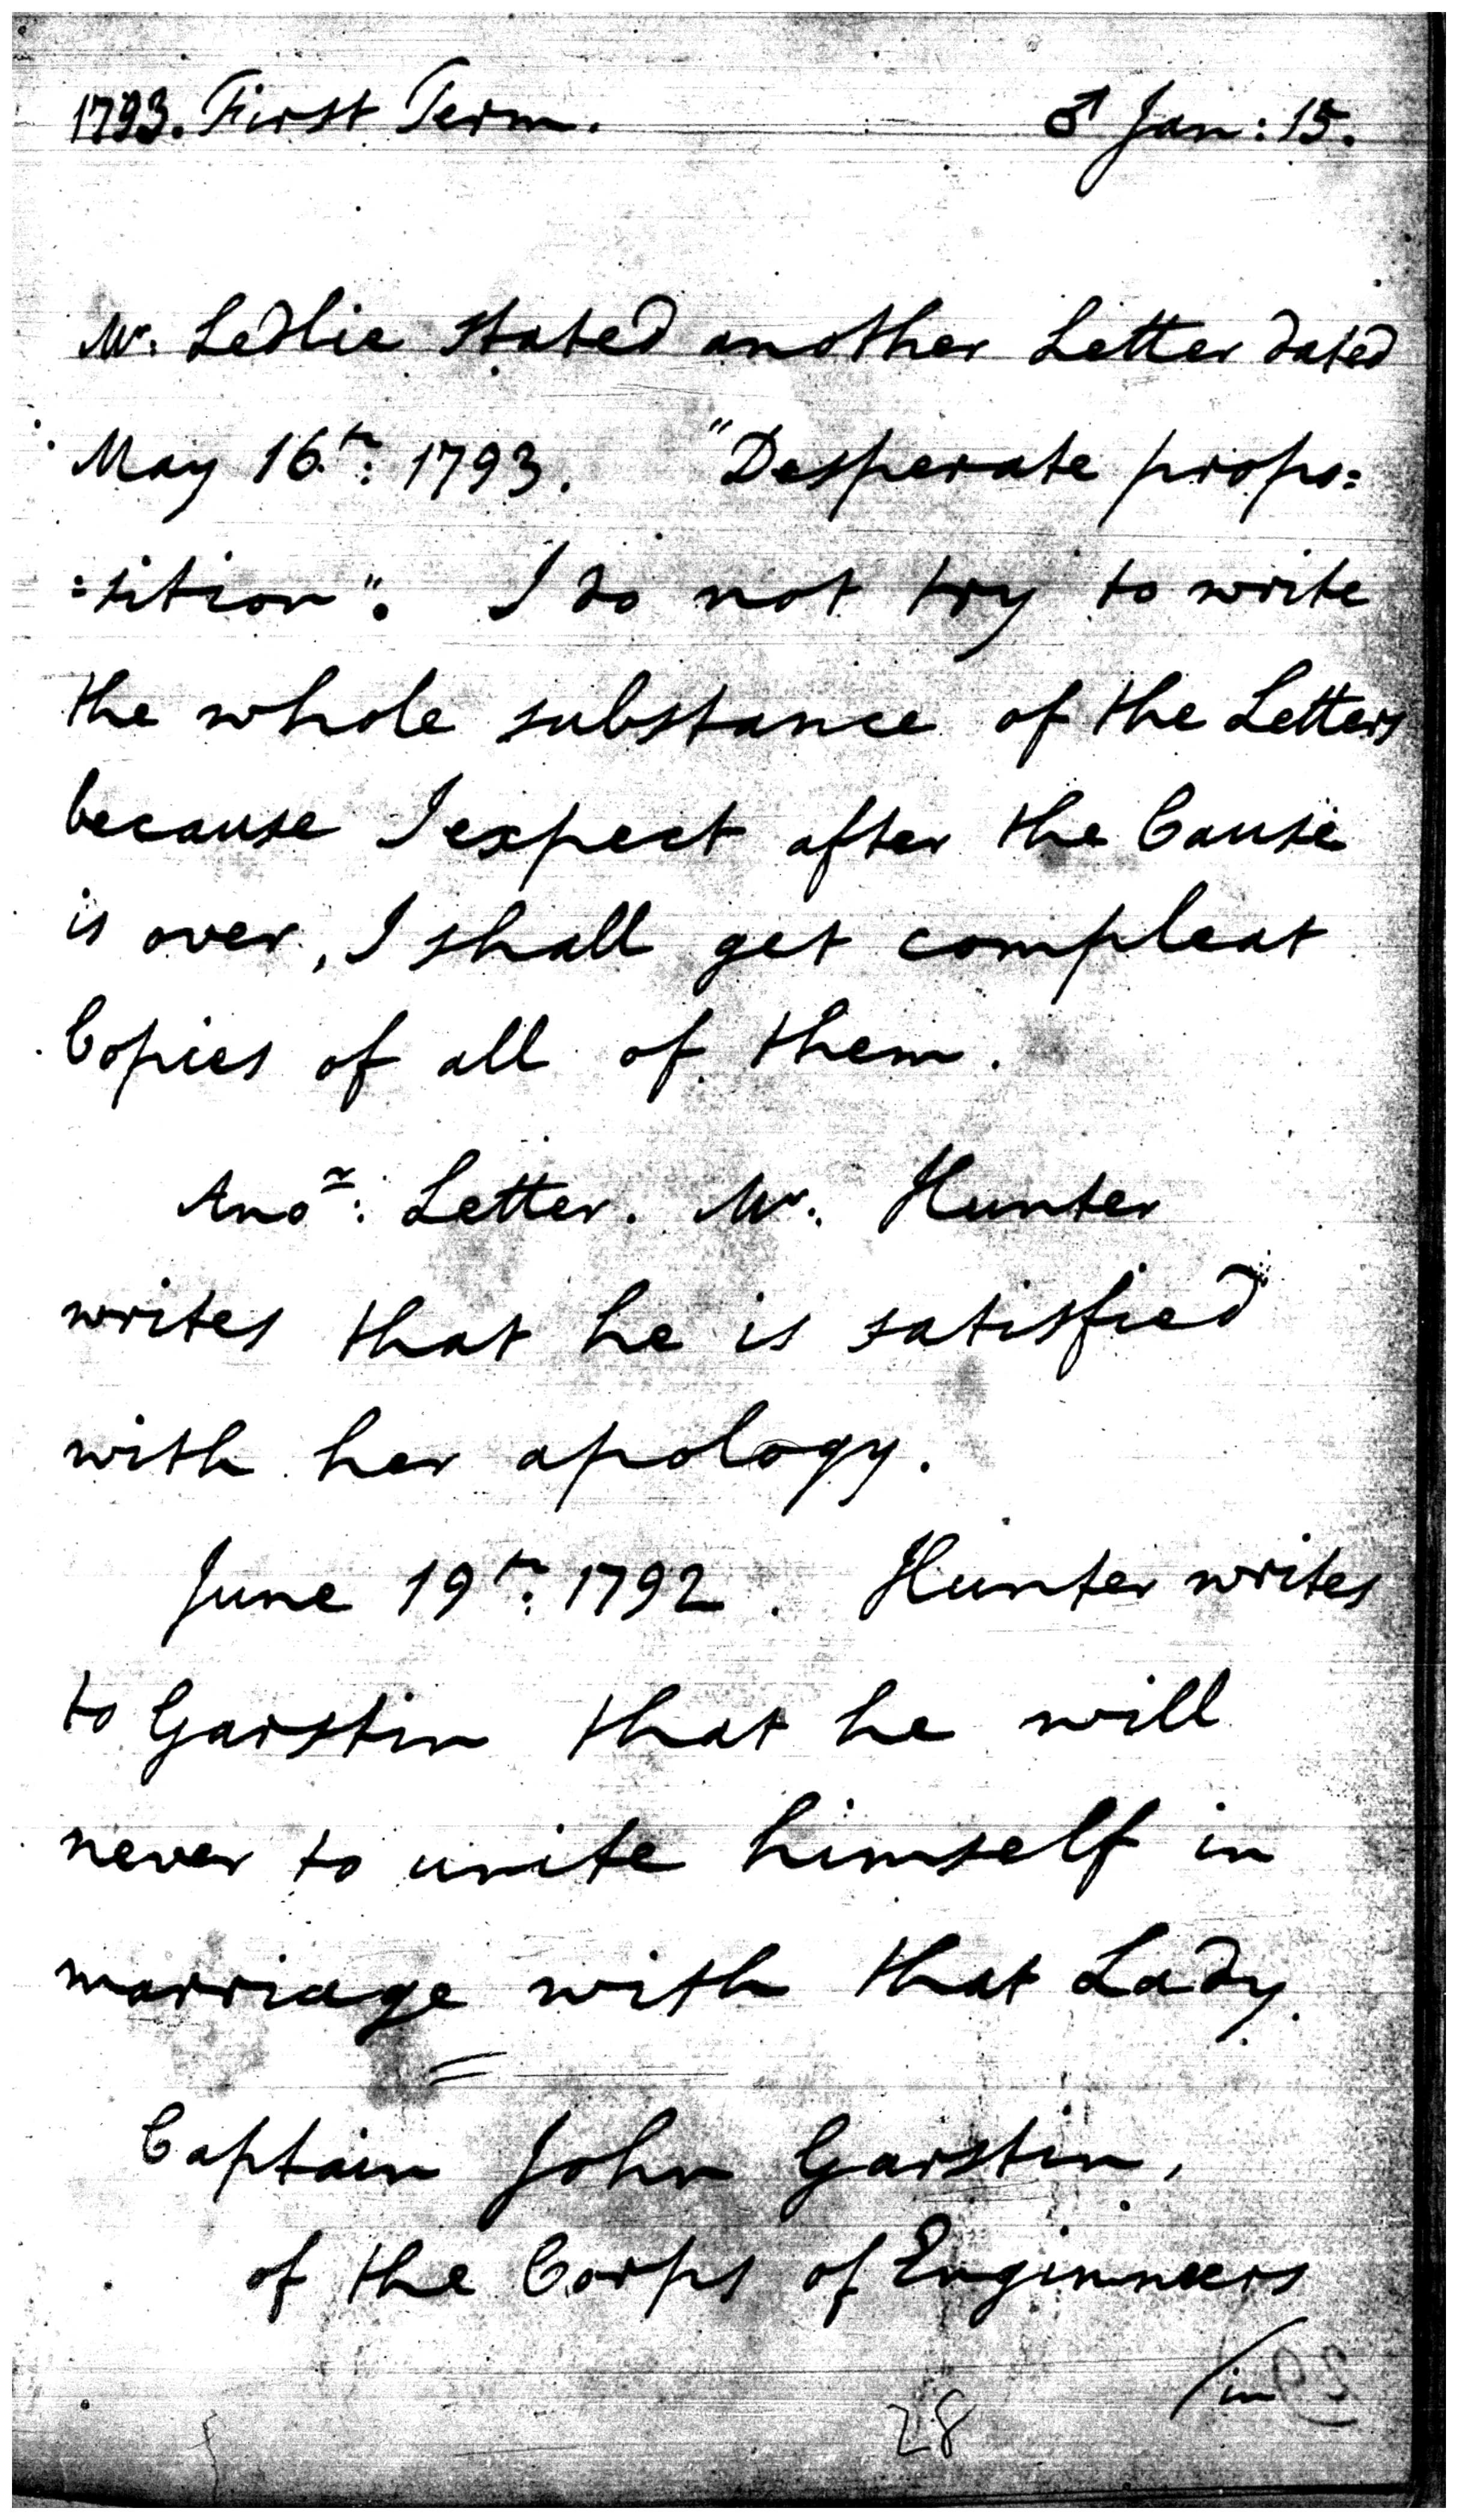 1793. First Term. ♂ Jan: 15.
Mr. Ledlie stated another Letter dated
May 16.th: 1793. "Desperate propo=
=sition". I do not try to write
the whole substance of the Letters
because I expect after the Cause
is over, I shall get compleat
Copies of all of them.
Anor: Letter. Mr. Hunter
writes that he is satisfied
with her apology.
June 19th: 1792. Hunter writes
to Garstin that he will
never to unite himself in
marriage with that Lady.
Captain John Garstin,
of the Corps of Enginneers
/in
28